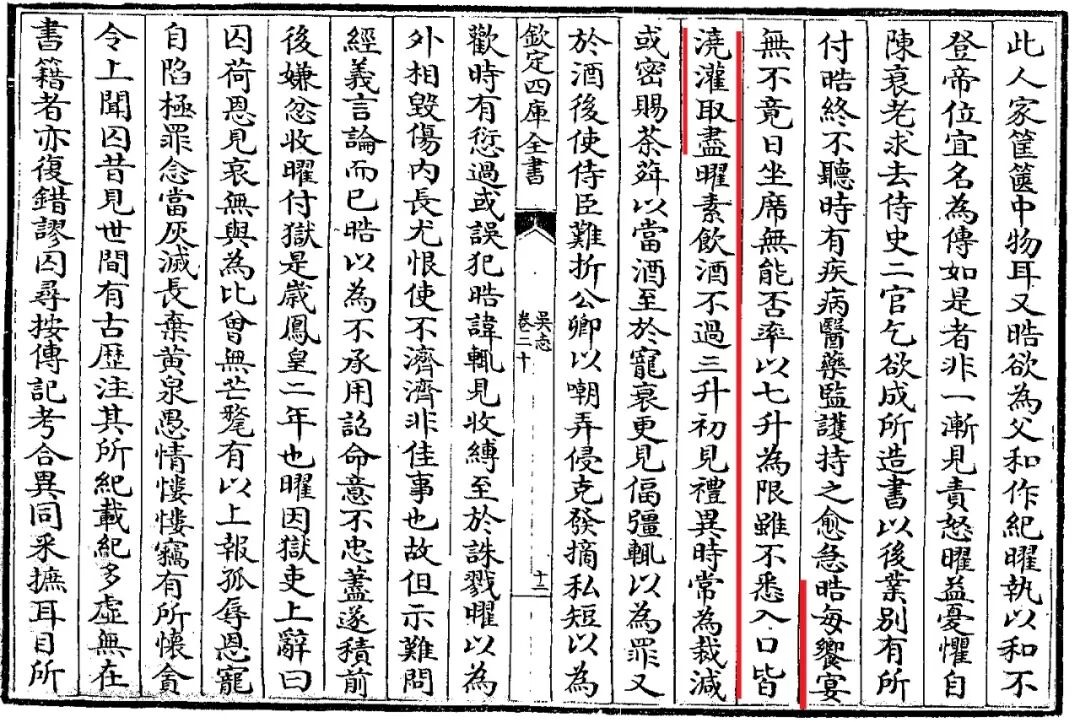 此人家筐篋中物耳又晧欲為父和作紀曜執以和不
登帝位宜名為傳如是者非一漸見責怒曜益憂懼自
陳衰老求去侍史二官乞欲成所造書以後業别有所
付晧終不聽時有疾病醫藥監護持之愈急晧每饗宴
無不竟日坐席無能否率以七升為限雖不悉入口皆
澆灌取盡曜素飲酒不過三升初見禮異時常為裁減
或密賜茶荈以當酒至於寵衰更見偪彊輒以為罪又
於酒後使侍臣難折公卿以嘲弄侵克發摘私短以為
欽定四庫全書
吳志
卷二十
十二
歡時有愆過或誤犯晧諱輒見收縛至於誅戮曜以為
外相毀傷内長尤恨使不濟濟非佳事也故但示難問
經義言論而已晧以為不承用詔命意不忠蓋遂積前
後嫌忿收曜付獄是歲鳳皇二年也曜因獄吏上辭曰
囚荷恩見哀無與為比曾無芒氂有以上報孤辱恩寵
自陷極罪念當灰滅長棄黄泉愚情慺慺竊有所懷貪
令上聞囚昔見世間有古歷注其所紀載紀多虛無在
書籍者亦復錯謬囚尋按傳記考合異同采摭耳目所